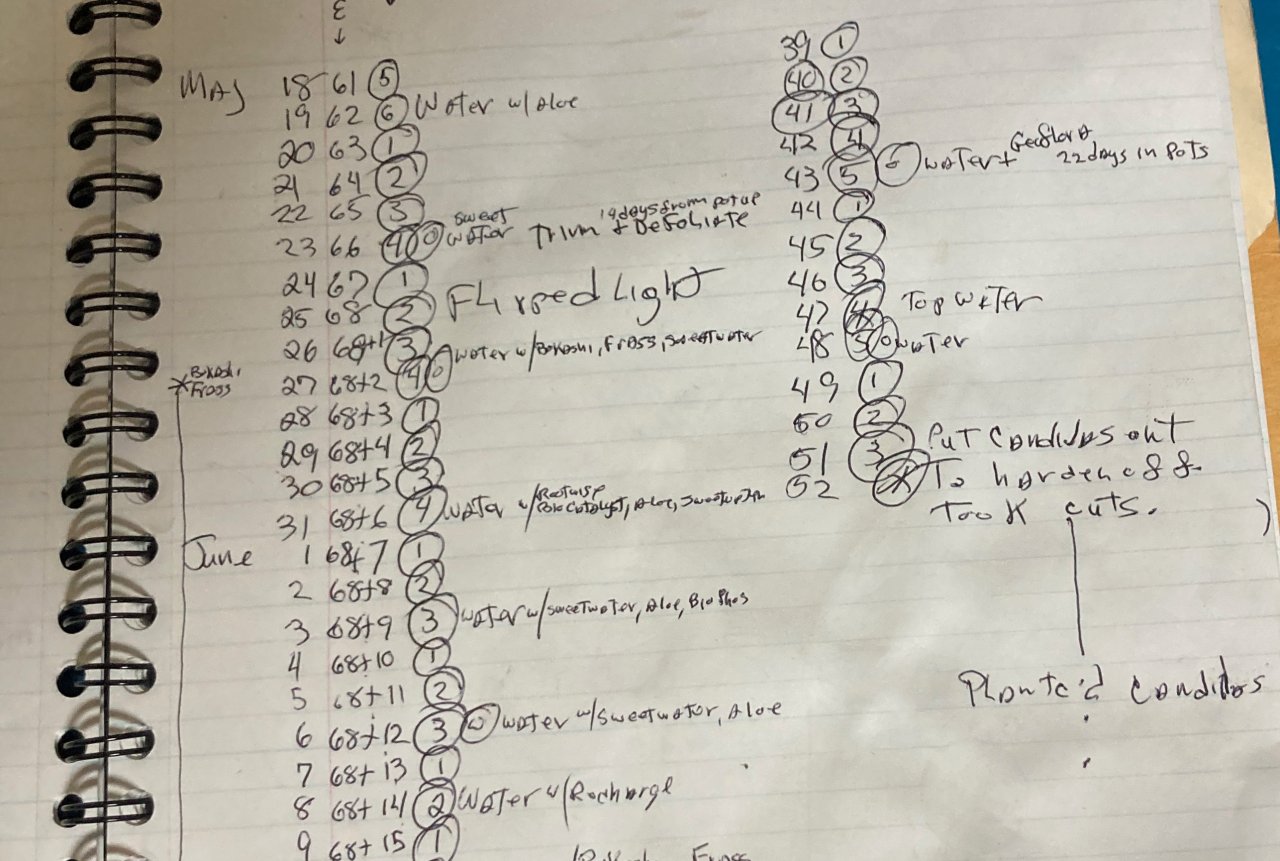 ε
↓
May 18 61 5
19 62 6 Water w/ Aloe
20 63 1
21 64 2
22 65 3
23 66 4 sweet water Trim + Defoliate 14 days from pot up
24 67 1
25 68 2 Flipped Light
26 68+1 3
Bokashi Frass 27 68+2 4 water w/Bokashi, Frass, sweetwater
28 68+3 1
29 68+4 2
30 68+5 3
31 68+6 4 water w/Rootwise Biocatalyst, Aloe, Sweetwater
June 1 68+7 1
2 68+8 2
3 68+9 3 water w/sweetwater, Aloe, BioPhos
4 68+10 1
5 68+11 2
6 68+12 3 water w/sweetwater, Aloe
7 68+13 1
8 68+14 2 Water w/Recharge
9 68+15 1
Frass
39 1
40 2
41 3
42 4
43 5 6 water + Geoflora 22 days in pots
44 1
45 2
46 3
47 4 Top water
48 5 water
49 1
50 2
51 3 Put Candidas out
52 4 To harden off &
Took cuts.
Plante'd Candidas